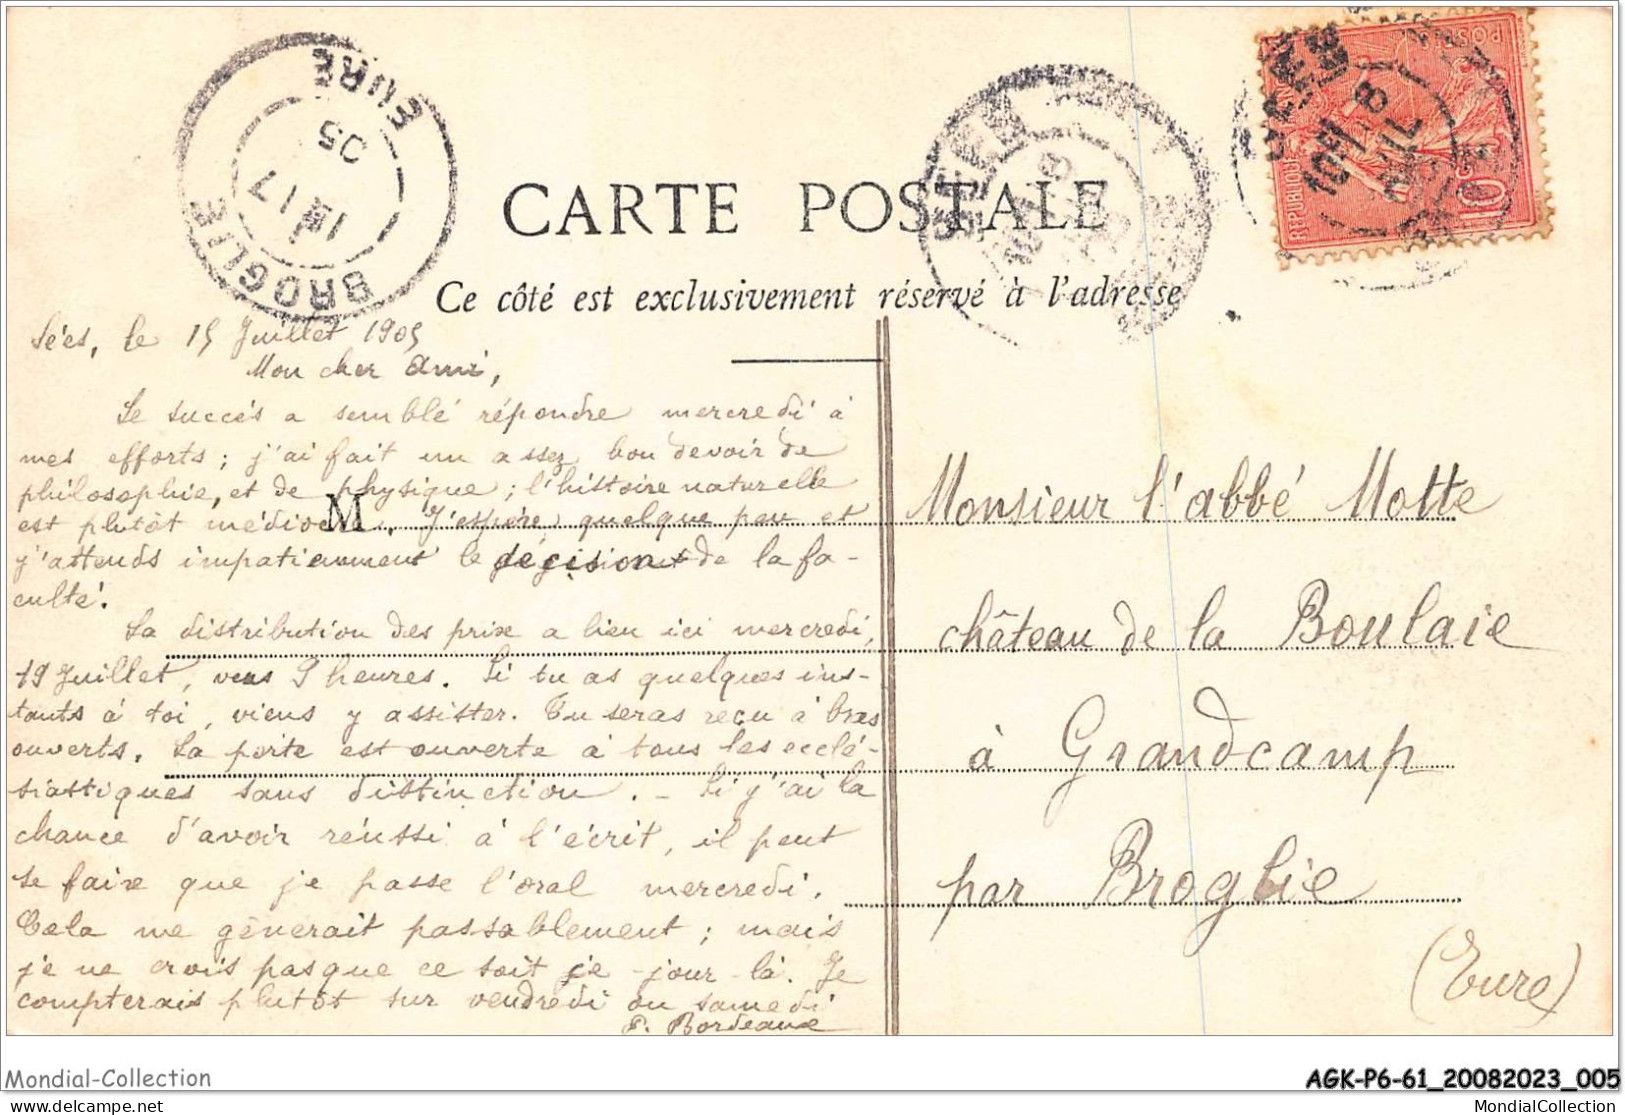 EURE
05
17
BROGLIE
10
POSTES
REPUBLIQUE
10
CARTE POSTALE
Ce côté est exclusivement réservé à l'adresse
Sées, le 15 Juillet 1905
Mon cher Ami,
Le succès a semblé répondre mercredi à
mes efforts ; j'ai fait un assez bon devoir de
philosophie, et de physique ; l'histoire naturelle
est plutôt médiocre. J'espère, quelque peu et
M
j'attends impatiemment le décision de la fa-
culté.
La distribution des prix a lieu ici mercredi,
19 Juillet, vers 9 heures. Si tu as quelques ins-
tants à toi, viens y assister. Tu seras reçu à bras
ouverts. La porte est ouverte à tous les ecclé-
siastiques sans distinction. - Si j'ai la
chance d'avoir réussi à l'écrit, il peut
se faire que je passe l'oral mercredi.
Cela me gênerait passablement ; mais
je ne crois pas que ce soit ce jour-là. Je
compterais plutôt sur vendredi ou samedi
P. Bordeaux
Monsieur l'abbé Motte
château de la Boulaie
à Grandcamp
par Broglie
(Eure)
Mondial-Collection
AGK-P6-61_20082023_005
delcampe.net
MondialCollection